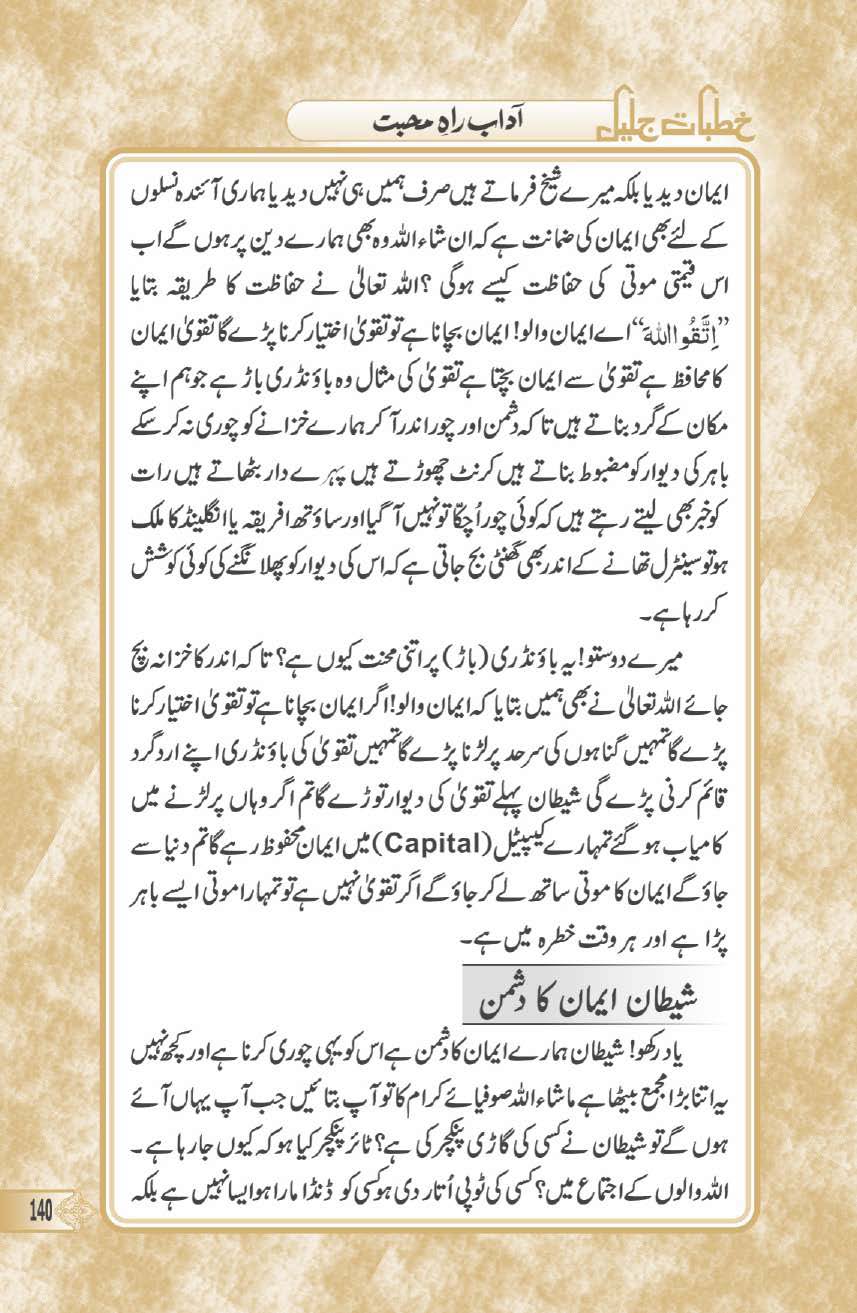 خطبات جلیل
آداب راہِ محبت
ایمان دیدیا بلکہ میرے شیخ فرماتے ہیں صرف ہمیں ہی نہیں دیدیا ہماری آئندہ نسلوں
کے لئے بھی ایمان کی ضمانت ہے کہ ان شاء اللہ وہ بھی ہمارے دین پر ہوں گے اب
اس قیمتی موتی کی حفاظت کیسے ہوگی ؟ اللہ تعالیٰ نے حفاظت کا طریقہ بتایا
”اِتَّقُوا اللهَ“ اے ایمان والو! ایمان بچانا ہے تو تقویٰ اختیار کرنا پڑے گا تقویٰ ایمان
کا محافظ ہے تقویٰ سے ایمان بچتا ہے تقویٰ کی مثال وہ باؤنڈری باڑ ہے جو ہم اپنے
مکان کے گرد بناتے ہیں تاکہ دشمن اور چور اندر آ کر ہمارے خزانے کو چوری نہ کر سکے
باہر کی دیوار کو مضبوط بناتے ہیں کرنٹ چھوڑتے ہیں پہرے دار بٹھاتے ہیں رات
کو خبر بھی لیتے رہتے ہیں کہ کوئی چور اُچکّا تو نہیں آ گیا اور ساؤتھ افریقہ یا انگلینڈ کا ملک
ہو تو سینٹرل تھانے کے اندر بھی گھنٹی بج جاتی ہے کہ اس کی دیوار کو پھلانگنے کی کوئی کوشش
کر رہا ہے۔
میرے دوستو! یہ باؤنڈری (باڑ) پر اتنی محنت کیوں ہے؟ تاکہ اندر کا خزانہ بچ
جائے اللہ تعالیٰ نے بھی ہمیں بتایا کہ ایمان والو! اگر ایمان بچانا ہے تو تقویٰ اختیار کرنا
پڑے گا تمہیں گناہوں کی سرحد پر لڑنا پڑے گا تمہیں تقویٰ کی باؤنڈری اپنے ارد گرد
قائم کرنی پڑے گی شیطان پہلے تقویٰ کی دیوار توڑے گا تم اگر وہاں پر لڑنے میں
کامیاب ہو گئے تمہارے کیپیٹل (Capital) میں ایمان محفوظ رہے گا تم دنیا سے
جاؤ گے ایمان کا موتی ساتھ لے کر جاؤ گے اگر تقویٰ نہیں ہے تو تمہارا موتی ایسے باہر
پڑا ہے اور ہر وقت خطرہ میں ہے۔
شیطان ایمان کا دشمن
یاد رکھو! شیطان ہمارے ایمان کا دشمن ہے اس کو یہی چوری کرنا ہے اور کچھ نہیں
یہ اتنا بڑا مجمع بیٹھا ہے ماشاء اللہ صوفیائے کرام کا تو آپ بتائیں جب آپ یہاں آئے
ہوں گے تو شیطان نے کسی کی گاڑی پنکچر کی ہے؟ ٹائر پنکچر کیا ہو کہ کیوں جا رہا ہے۔
اللہ والوں کے اجتماع میں؟ کسی کی ٹوپی اُتار دی ہو کسی کو ڈنڈا مارا ہو ایسا نہیں ہے بلکہ
140